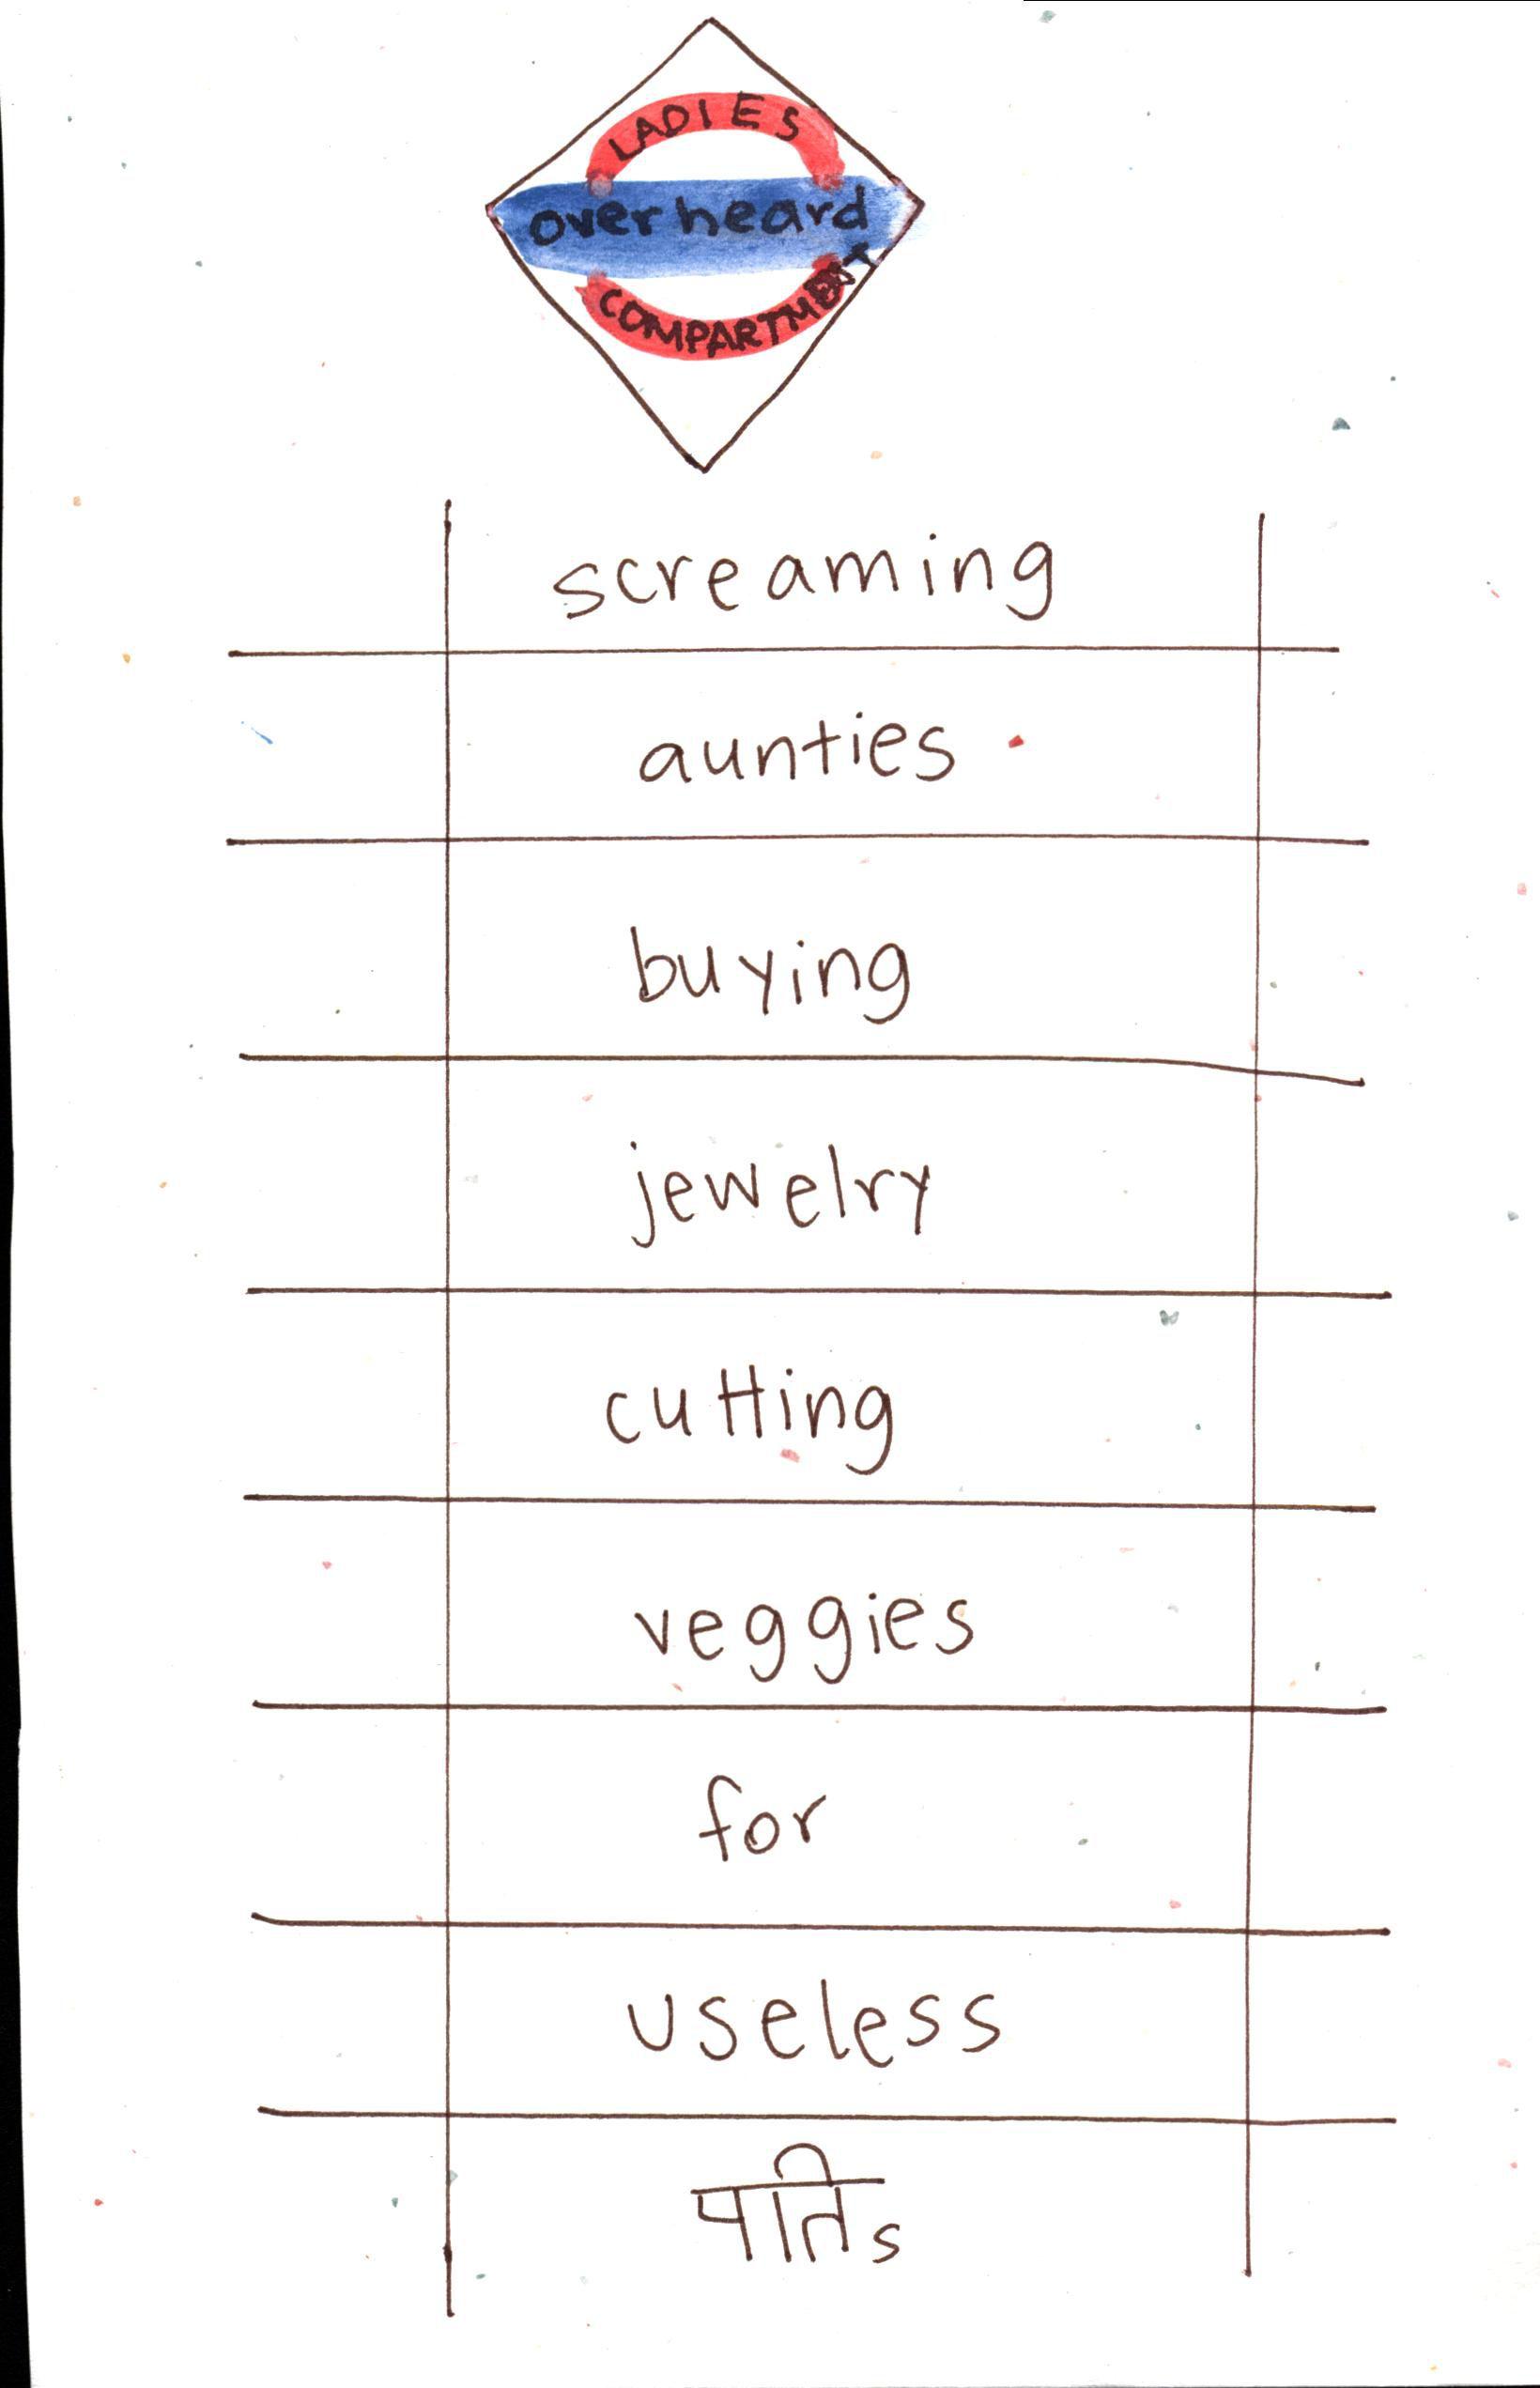 LADIES
overheard
COMPARTMENT
screaming
aunties
buying
jewelry
cutting
veggies
for
useless
पतिs